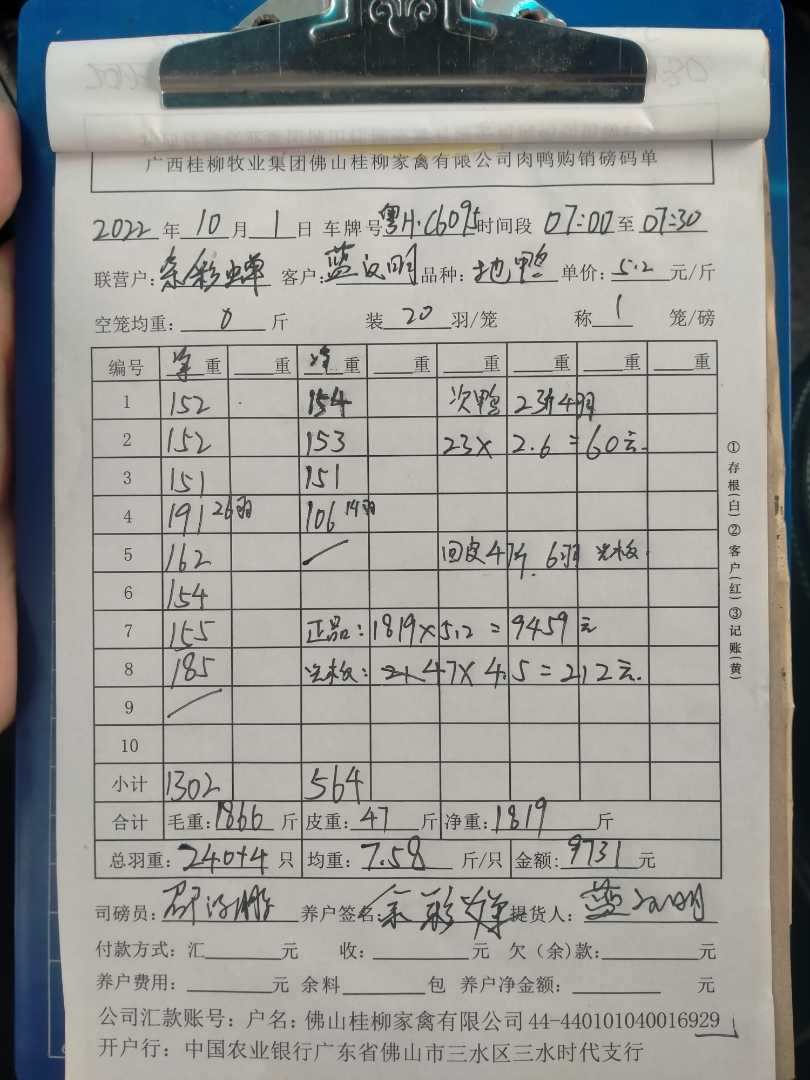 广西桂柳牧业集团佛山桂柳家禽有限公司肉鸭购销磅码单
2022年10月1日 车牌号粤H·C6095时间段 07:00至 07:30
联营户:余彩蝉 客户:蓝汉明 品种:土也鸭 单价:5.2元/斤
空笼均重:0斤 装20羽/笼 称1笼/磅
编号 净重 重 净重 重 重 重 重 重
1 152 154 次鸭 23斤4羽
2 152 153 23×2.6=60元.
3 151 151
4 191 26羽 106 14羽
5 162 回皮47斤. 6羽 光板.
6 154
7 155 正品:1819×5.2=9459元
8 185 光板:47×4.5=212元.
9
10
小计 1302 564
合计 毛重:1866斤 皮重:47斤 净重:1819斤
总羽重:240+4只 均重:7.58斤/只 金额:9731元
司磅员: 养户签名:余彩蝉 提货人:蓝汉明
付款方式:汇 元 收: 元 欠(余)款: 元
养户费用: 元 余料 包 养户净金额: 元
公司汇款账号:户名:佛山桂柳家禽有限公司 44-440101040016929
开户行:中国农业银行广东省佛山市三水区三水时代支行
①存根(白)②客户(红)③记账(黄)